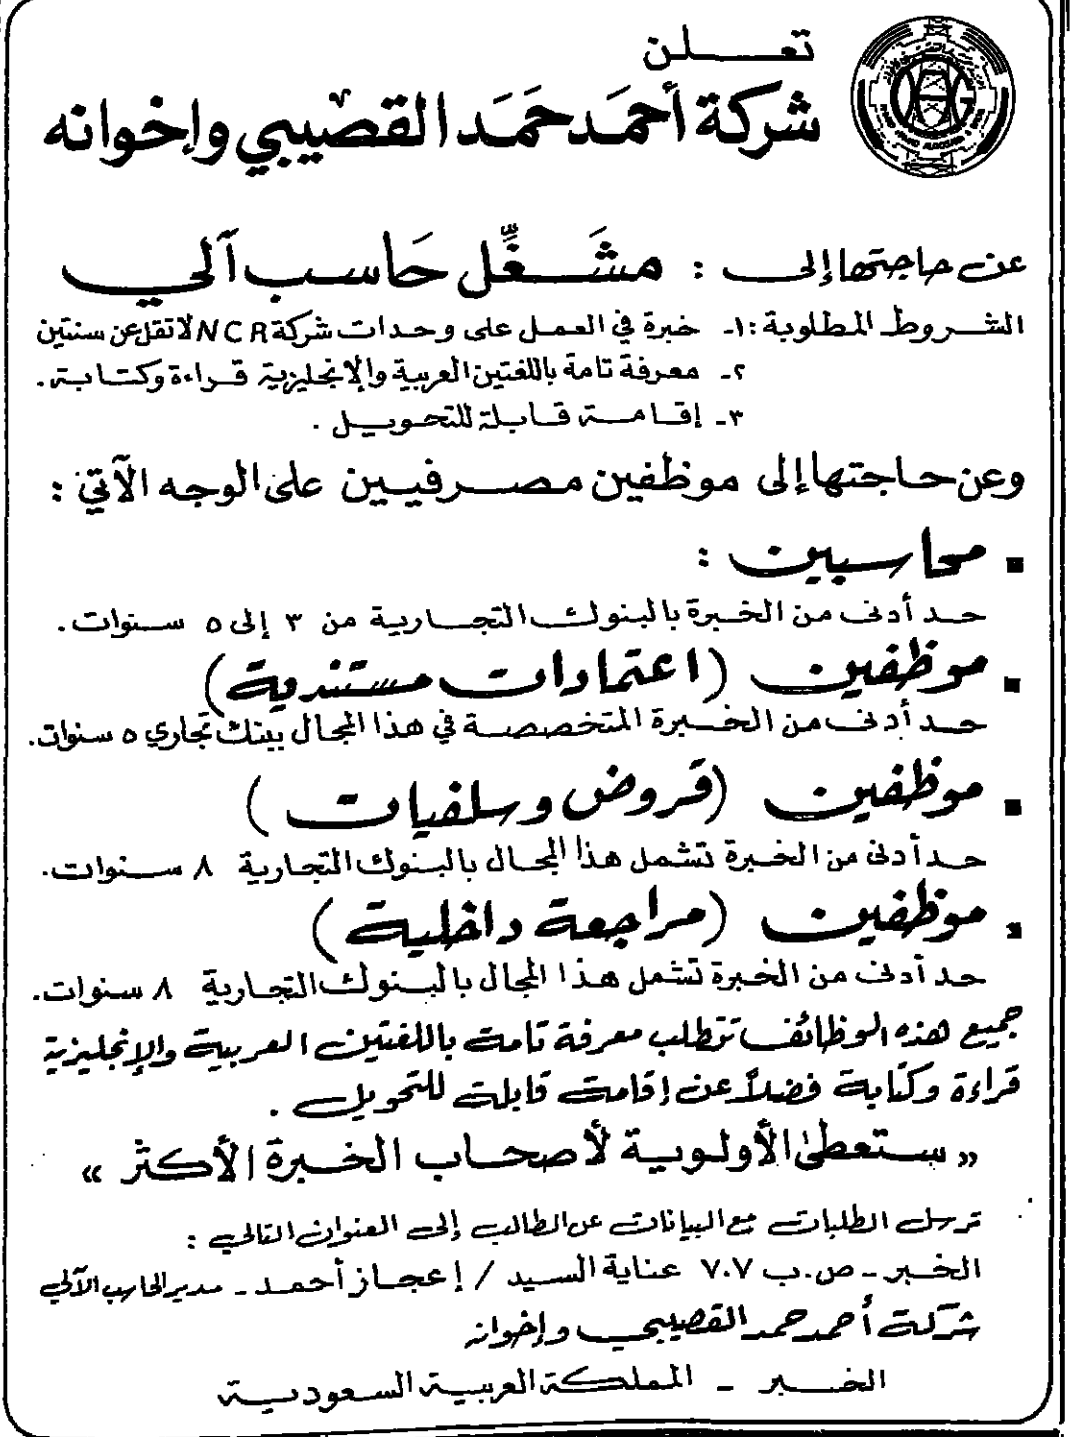 تعلن
شركة أحمَد حمَد القصيبي وإخوانه
عن حاجتها إلى : مشَغِّل حَاسب آلي
الشروط المطلوبة : ١- خبرة في العمل على وحدات شركة NCR لا تقل عن سنتين
٢- معرفة تامة باللغتين العربية والإنجليزية قراءة وكتابة .
٣- إقامة قابلة للتحويل .
وعن حاجتها إلى موظفين مصرفيين على الوجه الآتي :
▪ محاسبين :
حد أدنى من الخبرة بالبنوك التجارية من ٣ إلى ٥ سنوات .
▪ موظفين (اعتمادات مستندية)
حد أدنى من الخبرة المتخصصة في هذا المجال ببنك تجاري ٥ سنوات .
▪ موظفين (قروض وسلفيات)
حد أدنى من الخبرة تشمل هذا المجال بالبنوك التجارية ٨ سنوات .
▪ موظفين (مراجعة داخلية)
حد أدنى من الخبرة تشمل هذا المجال بالبنوك التجارية ٨ سنوات .
جميع هذه الوظائف تتطلب معرفة تامة باللغتين العربية والإنجليزية
قراءة وكتابة فضلاً عن إقامة قابلة للتحويل .
« ستعطى الأولوية لأصحاب الخبرة الأكثر »
ترسل الطلبات مع البيانات عن الطالب إلى العنوان التالي :
الخبر - ص.ب ٧٠٧ عناية السيد / إعجاز أحمد - مدير الحاسب الآلي
شركة أحمد حمد القصيبي وإخوانه
الخبر - المملكة العربية السعودية